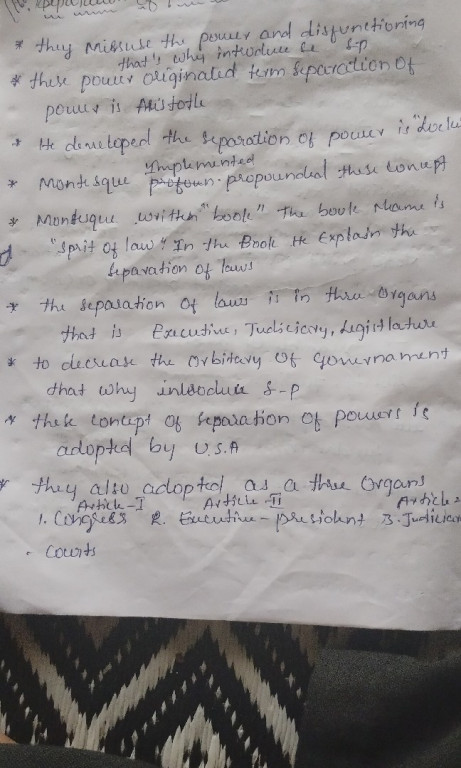 * they Missuse the power and disfunctioning
that's why introduce S-P
* these power originated term separation Of
power is Aristotle
* He developed the separation of power is "Locke
* Montesque Ymplemented propoundad these concept
* Montesque written "book" The book Name is
"Sprit of law" In the Book He Explain the
separation of laws
* the separation of laws is in three Organs
that is Executive, Judiciary, Legistlature
* to decrease the Orbitary Of governament
that why introduce S-P
* these concept Of separation Of powers is
adopted by U.S.A
* they also adopted as a three Organs
Article-I Article-II Article
1. Congress 2. Executive-president 3. Judiciar
- Courts